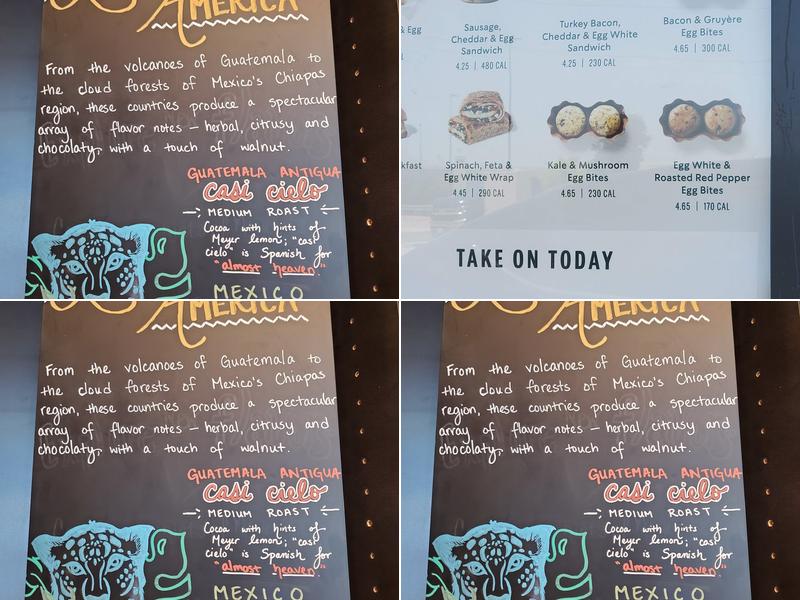 AMERICA
From the volcanoes of Guatemala to
the cloud forests of Mexico's Chiapas
region, these countries produce a spectacular
array of flavor notes – herbal, citrusy and
chocolaty, with a touch of walnut.
GUATEMALA ANTIGUA
casi cielo
MEDIUM ROAST
Cocoa with hints of
Meyer lemon; "casi
cielo" is Spanish for
"almost heaven."
MEXICO
& Egg
Sausage,
Cheddar & Egg
Sandwich
4.25 | 480 CAL
Turkey Bacon,
Cheddar & Egg White
Sandwich
4.25 | 230 CAL
Bacon & Gruyère
Egg Bites
4.65 | 300 CAL
kfast
Spinach, Feta &
Egg White Wrap
4.45 | 290 CAL
Kale & Mushroom
Egg Bites
4.65 | 230 CAL
Egg White &
Roasted Red Pepper
Egg Bites
4.65 | 170 CAL
TAKE ON TODAY
AMERICA
From the volcanoes of Guatemala to
the cloud forests of Mexico's Chiapas
region, these countries produce a spectacular
array of flavor notes – herbal, citrusy and
chocolaty, with a touch of walnut.
GUATEMALA ANTIGUA
casi cielo
MEDIUM ROAST
Cocoa with hints of
Meyer lemon; "casi
cielo" is Spanish for
"almost heaven."
MEXICO
AMERICA
From the volcanoes of Guatemala to
the cloud forests of Mexico's Chiapas
region, these countries produce a spectacular
array of flavor notes – herbal, citrusy and
chocolaty, with a touch of walnut.
GUATEMALA ANTIGUA
casi cielo
MEDIUM ROAST
Cocoa with hints of
Meyer lemon; "casi
cielo" is Spanish for
"almost heaven."
MEXICO